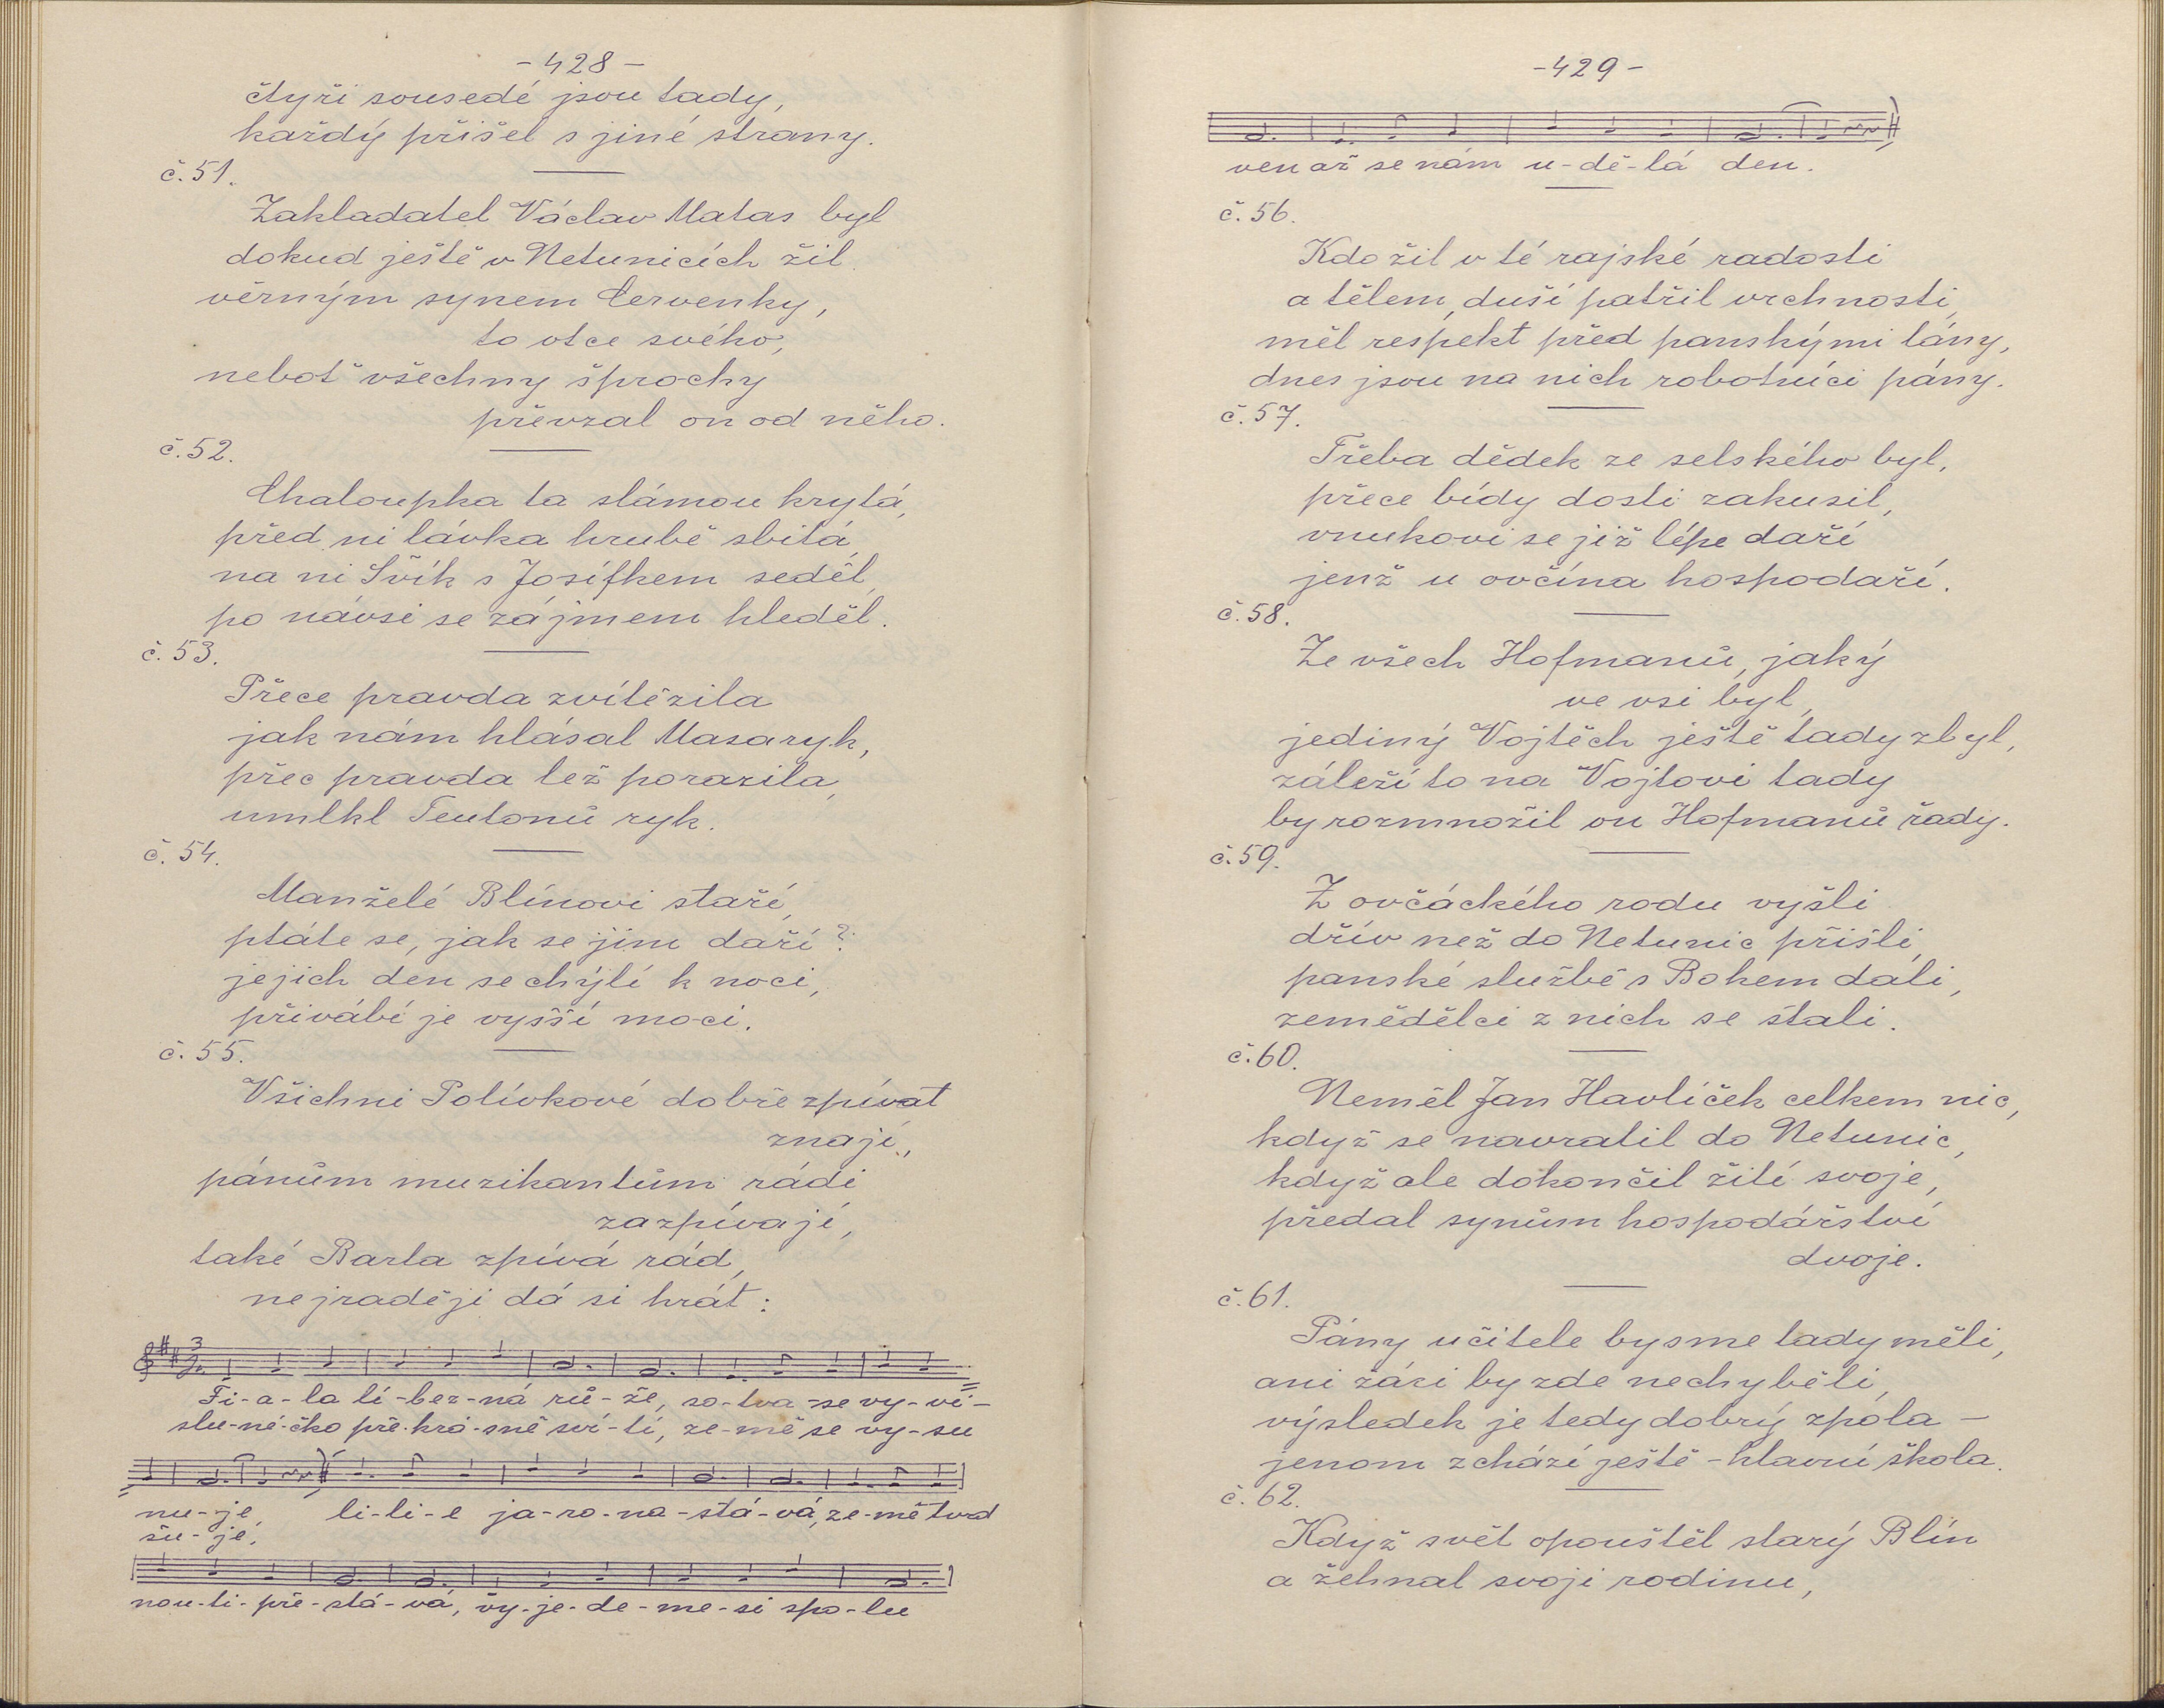 -428-
čtyři sousedé jsou tady,
každý přišel s jiné strany.
č.51.
Zakladatel Václav Matas byl
dokud ještě v Netunicích žil
věrným synem Červenky,
to otce svého,
neboť všechny šprochy
převzal on od něho.
č.52.
Chaloupka ta slámou krytá,
před ni lávka hrubě sbitá,
na ni Švík s Josífkem seděl,
po návsi se zájmem hleděl.
č.53.
Přece pravda zvítězila
jak nám hlásal Masaryk,
přec pravda lež porazila,
umlkl Teutonů ryk.
č.54.
Manželé Blínovi staří,
ptáte se, jak se jim daří?
jejich den se chýlí k noci,
přivábí je vyšší moci.
č.55.
Všichni Polívkové dobře zpívat
znají,
pánům muzikantům rádi
zazpívají,
také Barla zpívá rád,
nejraději dá si hrát:
Fi-a-la lí-bez-ná rů-že, so-tva se vy-vi-
slu-né-čko pře-krá-sně sví-tí, ze-mě se vy-su
nu-je, li-li-e ja-ro-na-stá-vá, ze-mě tvrd
šu-je,
nou-ti-pře-stá-vá, vy-je-de-me-si spo-lu
-429-
ven až se nám u-dě-lá den.
č.56.
Kdo žil v té rajské radosti
a tělem, duší patřil vrchnosti,
měl respekt před panskými lány,
dnes jsou na nich robotníci pány.
č.57.
Třeba dědek ze selského byl,
přece bídy dosti zakusil,
vnukovi se již lépe daří,
jenž u ovčína hospodaří.
č.58.
Ze všech Hofmanů, jaký
ve vsi byl,
jediný Vojtěch ještě tady zbyl,
záleží to na Vojtovi tady
by rozmnožil on Hofmanů řady.
č.59.
Z ovčáckého rodu vyšli
dřív než do Netunic přišli,
panské službě s Bohem dali,
zemědělci z nich se stali.
č.60.
Neměl Jan Havlíček celkem nic,
když se navratil do Netunic,
když ale dokončil žití svoje,
předal synům hospodářství
dvoje.
č.61.
Pány učitele bysme tady měli,
ani žáci by zde nechyběli,
výsledek je tedy dobrý zpola -
jenom zchází ještě - hlavní škola.
č.62.
Když svět opouštěl starý Blín
a žehnal svoji rodinu,